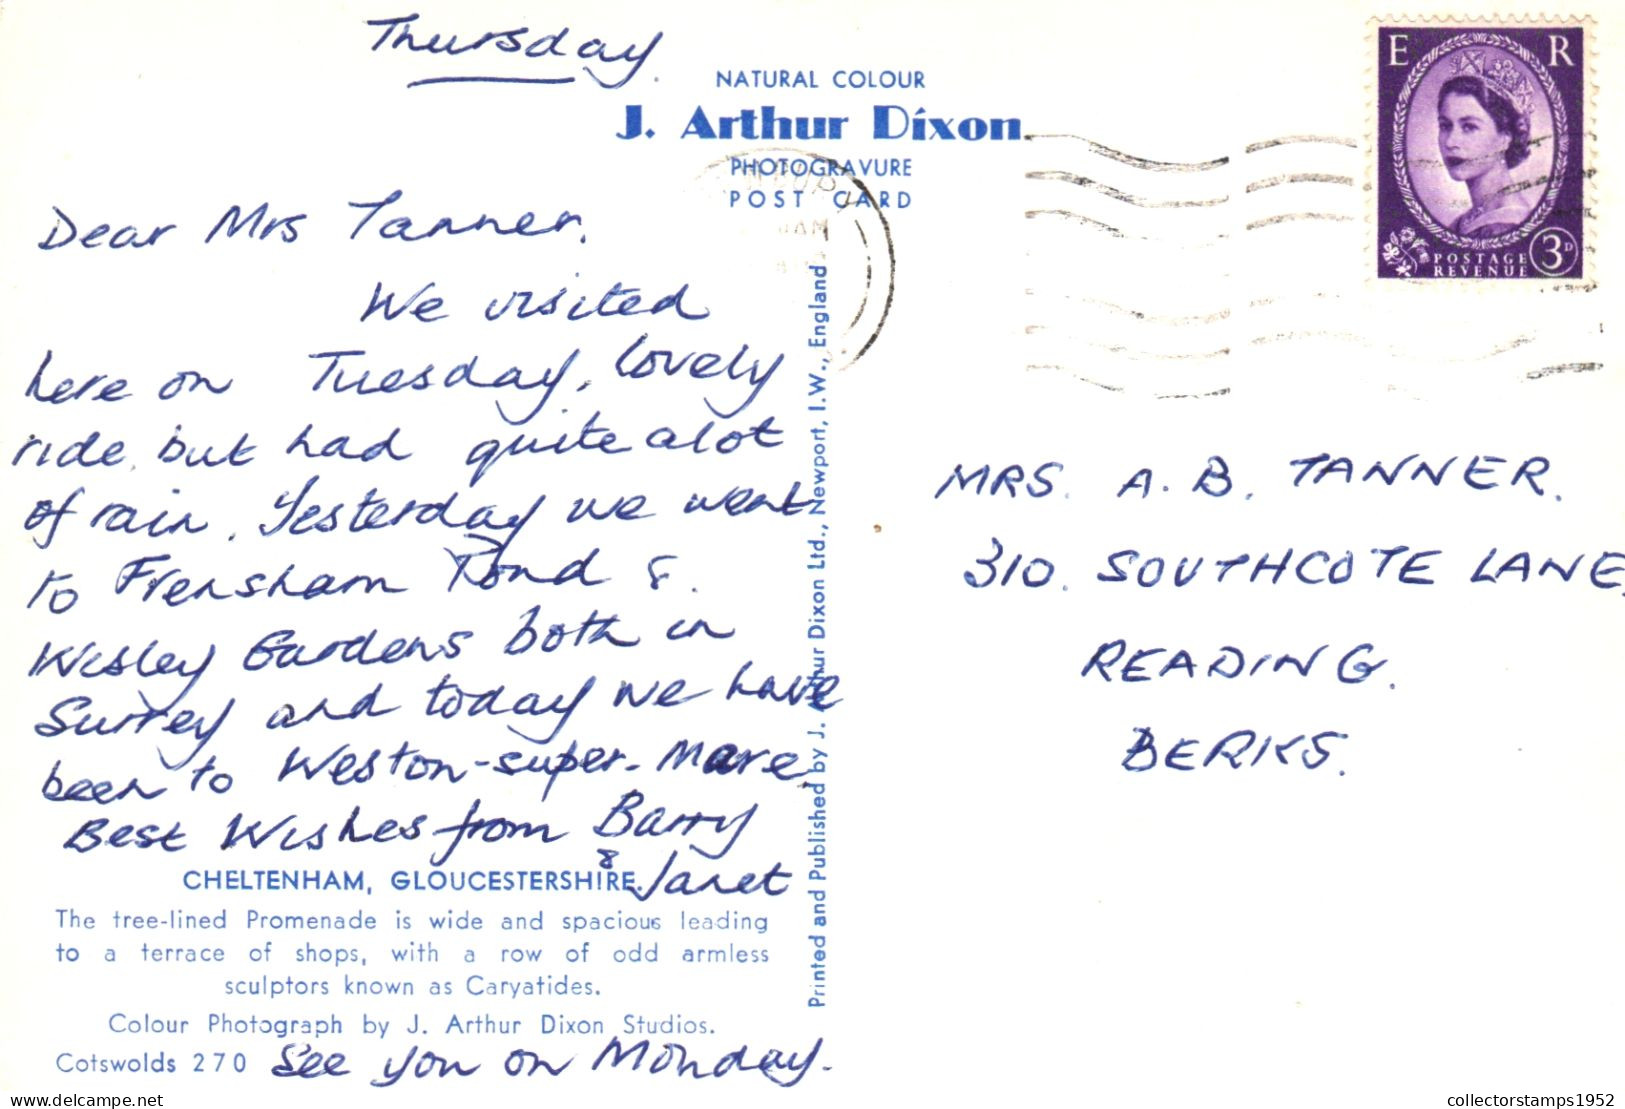 Thursday.
NATURAL COLOUR
J. Arthur Dixon
PHOTOGRAVURE
POST CARD
E R
POSTAGE
REVENUE
3D
Dear Mrs Tanner,
We visited
here on Tuesday, lovely
ride, but had quite alot
of rain. Yesterday we went
to Frensham Pond &
Wisley Gardens both in
Surrey and today we have
been to Weston-super-Mare,
Best Wishes from Barry
& Janet
CHELTENHAM, GLOUCESTERSHIRE.
The tree-lined Promenade is wide and spacious leading
to a terrace of shops, with a row of odd armless
sculptors known as Caryatides.
Colour Photograph by J. Arthur Dixon Studios.
Cotswolds 270
See you on Monday.
Printed and Published by J. Arthur Dixon Ltd., Newport, I.W., England
MRS. A. B. TANNER.
310. SOUTHCOTE LANE.
READING.
BERKS.
collectorstamps1952